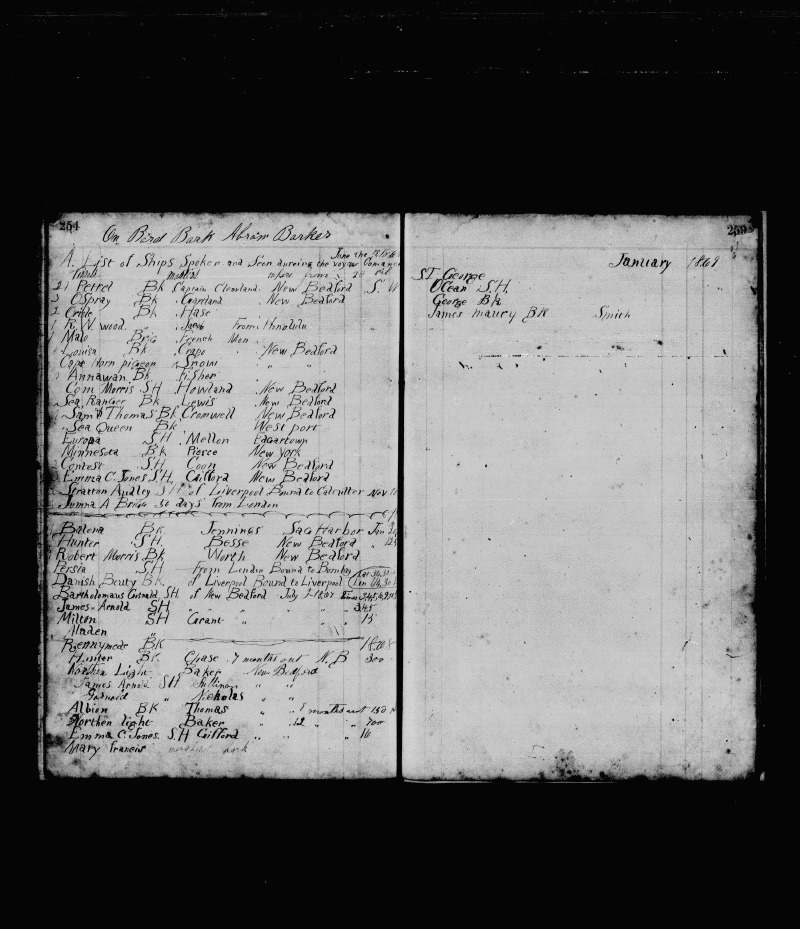 254
On Bord Bark Abram Barker
A. List of Ships Spoken and Seen dureing the voyage
Petrel Bk Captain Cleveland. New Bedford
Ospray Bk New Bedford
Bk Hase
R. W. wood. From Honolulu
Malo Brig French Mon
Louisa Bk Crapo New Bedford
Cope Horn pigeon Snow " "
Annawan Bk Fisher
Com Morris SH Howland New Bedford
Sea Ranger Bk Lewis New Bedford
Saml Thomas Bk Cromwell New Bedford
Sea Queen Bk West port
Europa SH Mellon Edgartown
Minnesota Bk Pierce New York
Contest SH Coon New Bedford
Emma C. Jones S.H. Gifford New Bedford
Stratton Audley SH of Liverpool Bound to Calcutter Nov
Brig 50 days from London
Balena Bk Jennings Sag Harbor Jan
Hunter SH. Besse New Bedford
Robert Morris Bk Worth New Bedford
Persia SH From London Bound to Bombay
Danish Beuty BK of Liverpool Bound to Liverpool
Bartholomaus Gosnold SH. of New Bedford July 1867
James Arnold SH " " " 345
Milton SH Grant " " 15
Maden "
Rennymede BK
Hunter BK Chase 7 months out N.B 300
Northen Light Baker New Bedford
James Arnold SH " "
Gosnold " Nicholas " "
Albion BK Thomas " months out 150
Northen light Baker " 12 " " 700
Emma C. Jones. S.H Gifford " " " 16
Mary Francis
259
January 1869
ST George
Ocean S.H.
George Bk
James maury BK Smith